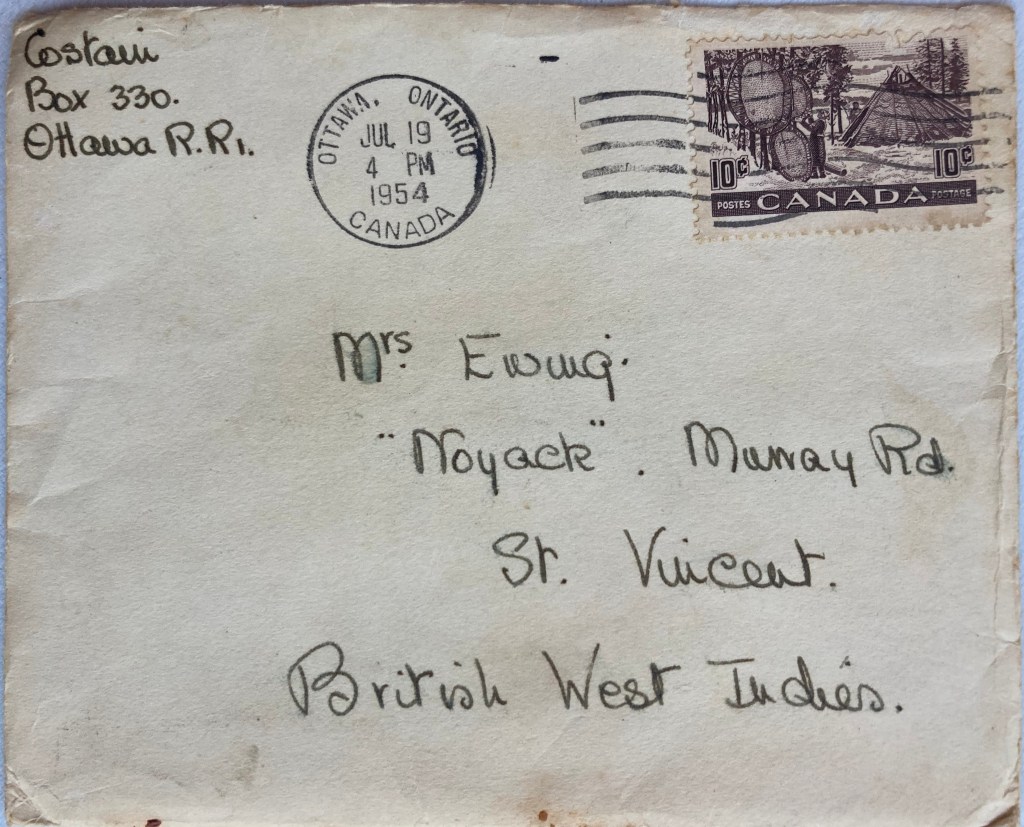 Costain
Box 330.
Ottawa R.R1.
OTTAWA, ONTARIO
JUL 19
4 PM
1954
CANADA
10¢ 10¢
POSTES CANADA POSTAGE
Mrs. Ewing.
"Noyack". Murray Rd.
St. Vincent.
British West Indies.